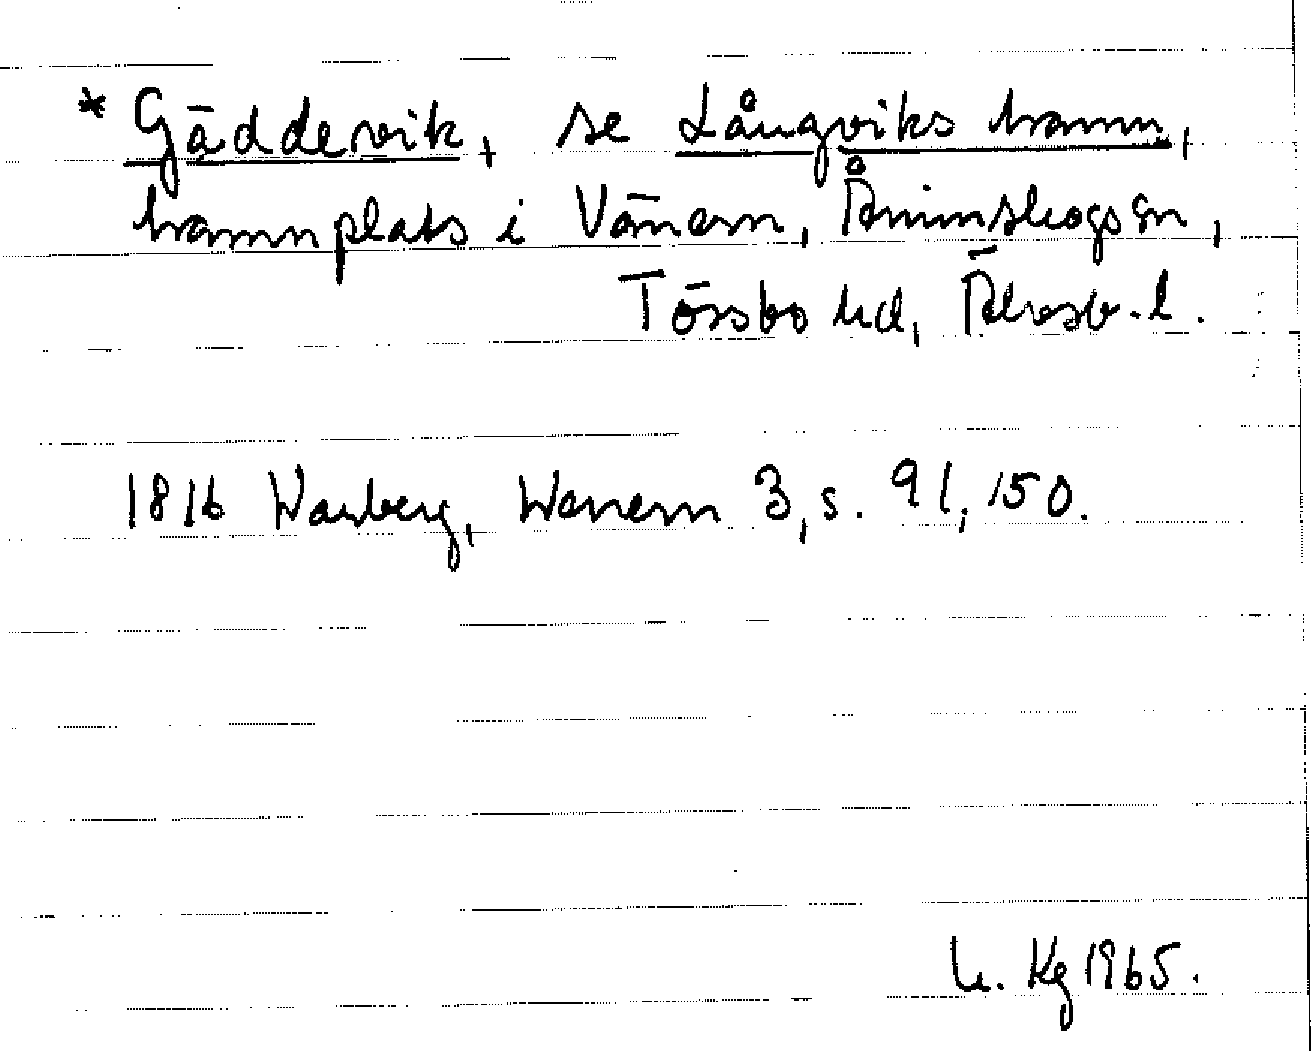 * Gäddevik, se Långviks hamn,
hamnplats i Vänern, Ånimskogs sn,
Tössbo hd, Älvsb. l.
1816 Warberg, Wenern 3, s. 91, 150.
Kg 1965.